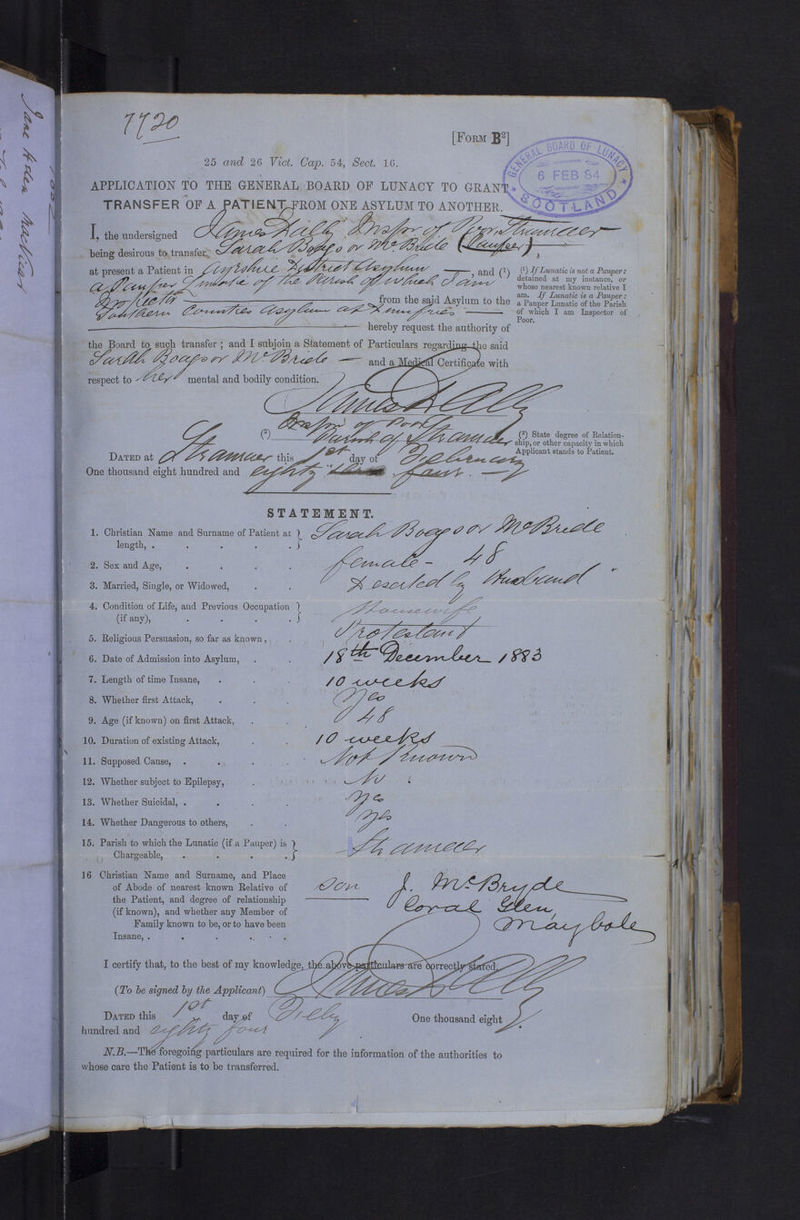 7720
[FORM B²]
GENERAL BOARD OF LUNACY
6 FEB 84
SCOTLAND
25 and 26 Vict. Cap. 54, Sect. 16.
APPLICATION TO THE GENERAL BOARD OF LUNACY TO GRANT
TRANSFER OF A PATIENT FROM ONE ASYLUM TO ANOTHER.
I, the undersigned James Dally Inspr of Poor Stranraer
being desirous to transfer, Sarah Boags or McBride (Pauper),
at present a Patient in Ayrshire District Asylum, and (¹)
a Pauper Lunatic of the Parish of which I am
Inspector from the said Asylum to the
Southern Counties Asylum at Dumfries
hereby request the authority of
the Board to such transfer; and I subjoin a Statement of Particulars regarding the said
Sarah Boags or McBride and a Medical Certificate with
respect to her mental and bodily condition.
(¹) If Lunatic is not a Pauper:
detained at my instance, or
whose nearest known relative I
am. If Lunatic is a Pauper:
a Pauper Lunatic of the Parish
of which I am Inspector of
Poor.
James Dally
(²) Inspr of Poor
Parish of Stranraer
(²) State degree of Relation-
ship, or other capacity in which
Applicant stands to Patient.
DATED at Stranraer this 1st day of February
One thousand eight hundred and eighty four.
STATEMENT.
1. Christian Name and Surname of Patient at length, . Sarah Boags or McBride
2. Sex and Age, female - 48
3. Married, Single, or Widowed, Deserted by Husband
4. Condition of Life, and Previous Occupation (if any), Housewife
5. Religious Persuasion, so far as known, Protestant
6. Date of Admission into Asylum, 18th December 1883
7. Length of time Insane, 10 weeks
8. Whether first Attack, Yes
9. Age (if known) on first Attack, 48
10. Duration of existing Attack, 10 weeks
11. Supposed Cause, Not Known
12. Whether subject to Epilepsy, No
13. Whether Suicidal, Yes
14. Whether Dangerous to others, Yes
15. Parish to which the Lunatic (if a Pauper) is Chargeable, Stranraer
16 Christian Name and Surname, and Place
of Abode of nearest known Relative of
the Patient, and degree of relationship
(if known), and whether any Member of
Family known to be, or to have been
Insane,
Son J. McBryde
Coral Glen,
Maybole
I certify that, to the best of my knowledge, the above particulars are correctly stated.
(To be signed by the Applicant) James Dally
DATED this 1st day of Feby One thousand eight
hundred and eighty four
N.B.—The foregoing particulars are required for the information of the authorities to
whose care the Patient is to be transferred.